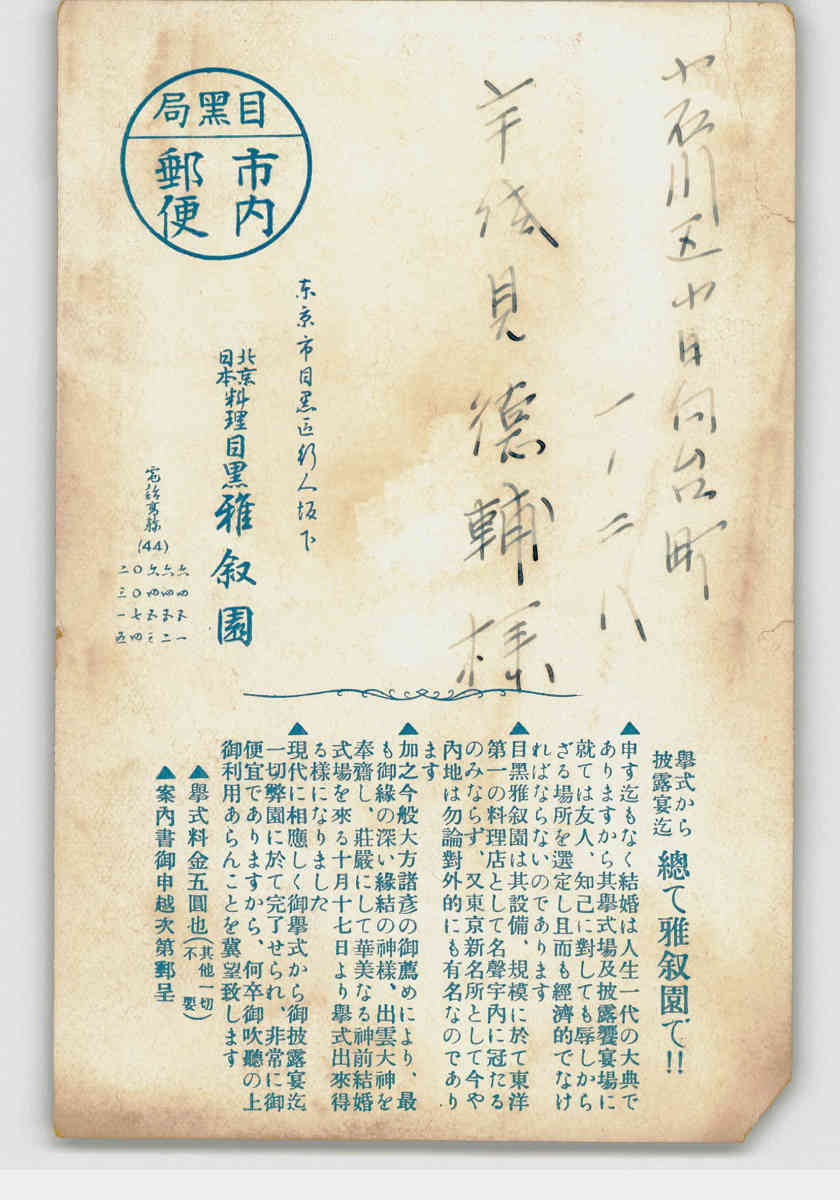 小石川区小日向台町
一ノ二八
浅見德輔様
目黑局
市内
郵便
东京市目黑区行人坂下
北京
日本
料理目黒雅叙園
(44)
六四五一
六四五二
六四五三
〇〇七四
二三一五
擧式から
披露宴迄
總て雅叙園で!!
▲申す迄もなく結婚は人生一代の大典で
ありますから其擧式場及披露饗宴場に
就ては友人、知己に對しても辱しから
ざる場所を選定し且而も經濟的でなけ
ればならないのであります
▲目黑雅叙園は其設備、規模に於て東洋
第一の料理店として名聲宇內に冠たる
のみならず、又東京新名所として今や
內地は勿論對外的にも有名なのであり
ます
▲加之今般大方諸彦の御薦めにより、最
も御緣の深い緣結の神様、出雲大神を
奉齋し、莊嚴にして華美なる神前結婚
式場を來る十月十七日より擧式出來得
る樣になりました
▲現代に相應しく御擧式から御披露宴迄
一切弊園に於て完了せられ、非常に御
便宜でありますから、何卒御吹聽の上
御利用あらんことを冀望致します
▲擧式料金五圓也(其他一切不要)
▲案內書御申越次第郵呈